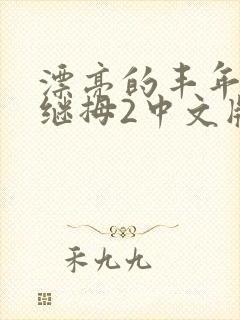 漂亮的丰年
继拇2中文版
禾九九